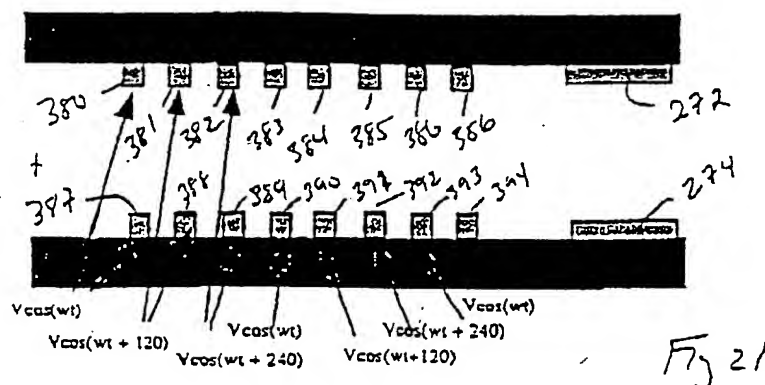 380 381 382 383 384 385 386 386 272
+
387 388 389 390 391 392 393 394 274
Vcos(wt) Vcos(wt + 120) Vcos(wt + 240) Vcos(wt) Vcos(wt+120) Vcos(wt + 240) Vcos(wt)
Fig 21